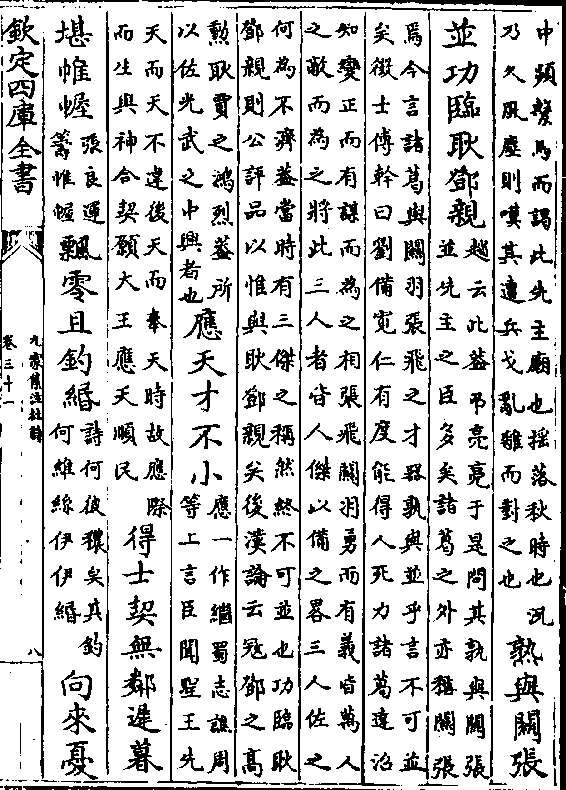 中頻繫馬而謁此先主廟也揺落秋時也況
乃久風塵則嘆其遭兵戈亂離而對之也
孰與關張
並功臨耿鄧親
趙云此蓋弔亮亮于是問其孰與關張
並先主之臣多矣諸葛之外亦稱關張
焉今言諸葛與關羽張飛之才器孰與並乎言不可並
矣徴士傅幹曰劉備寛仁有度能得人死力諸葛達治
知變正而有謀而為之相張飛關羽勇而有義皆萬人
之敵而為之將此三人者皆人傑以備之畧三人佐之
何為不濟蓋當時有三傑之稱然終不可並也功臨耿
鄧親則公評品以惟與耿鄧親矣後漢論云冦鄧之髙
勲耿賈之鴻烈蓋所
以佐光武之中興者也
應天才不小
應一作繼蜀志譙周
等上言臣聞聖王先
天而天不違後天而奉天時故應際
而生與神合契願大王應天順民
得士契無鄰遲暮
堪帷幄
張良運
籌帷幄
飄零且釣緡
詩何彼穠矣其釣
何維絲伊伊緡
向來憂
欽定四庫全書
九家集注杜詩
卷三十一
八